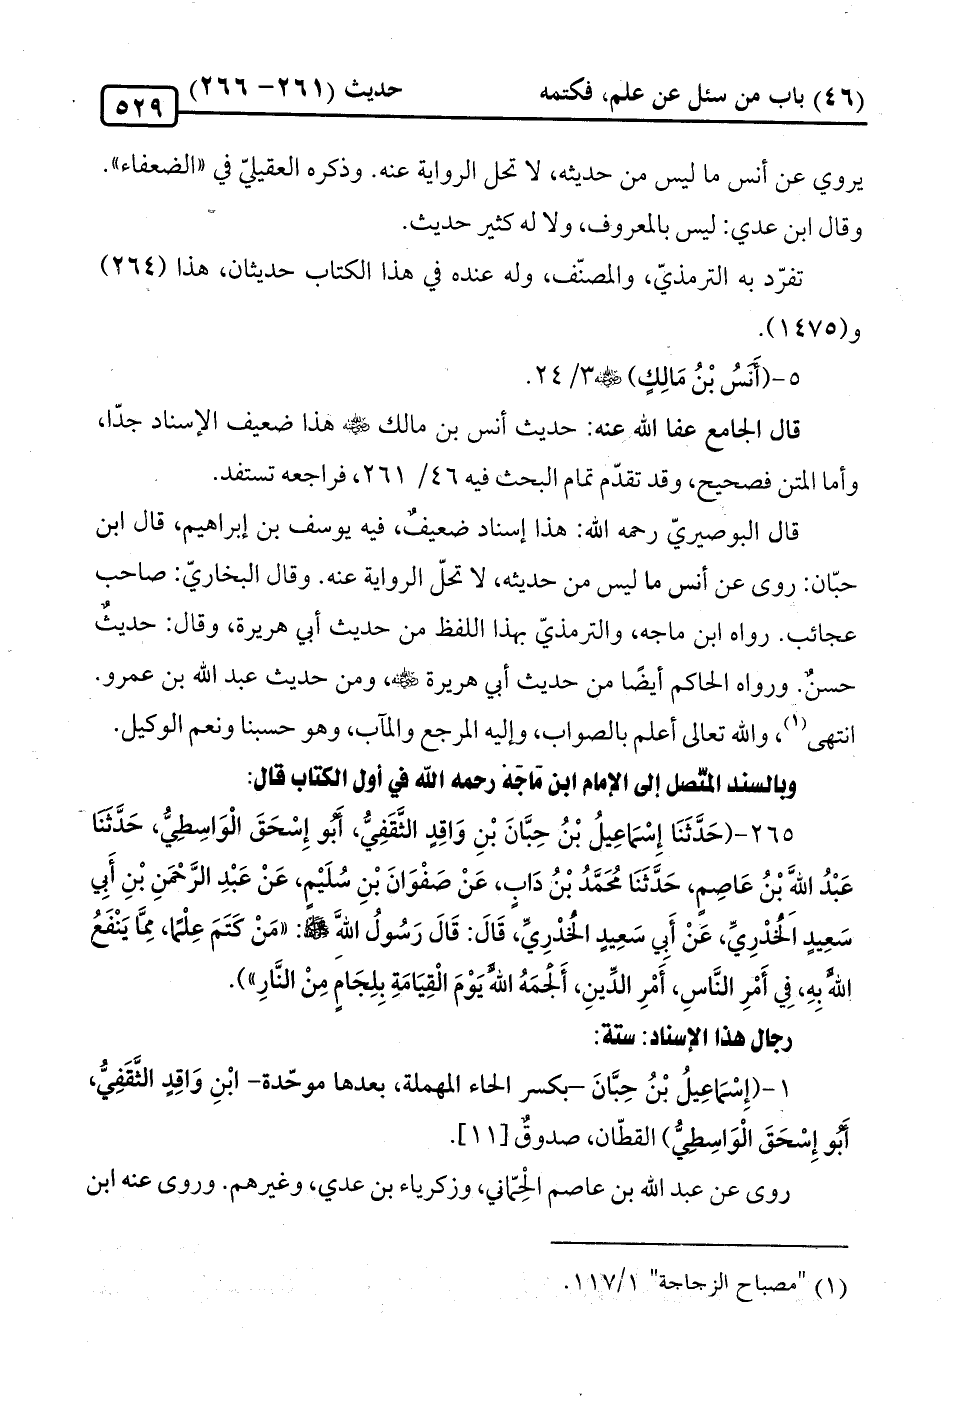 (٤٦) باب من سئل عن علم، فكتمه حديث (٢٦١- ٢٦٦) ٥٢٩
يروي عن أنس ما ليس من حديثه، لا تحل الرواية عنه. وذكره العقيليّ في «الضعفاء».
وقال ابن عدي: ليس بالمعروف، ولا له كثير حديث.
تفرّد به الترمذيّ، والمصنّف، وله عنده في هذا الكتاب حديثان، هذا (٢٦٤)
و(١٤٧٥).
٥-(أَنَسُ بْنُ مَالِكٍ) رضي الله عنه ٣/ ٢٤.
قال الجامع عفا الله عنه: حديث أنس بن مالك رضي الله عنه هذا ضعيف الإسناد جدّا،
وأما المتن فصحيح، وقد تقدّم تمام البحث فيه ٤٦/ ٢٦١، فراجعه تستفد.
قال البوصيريّ رحمه الله: هذا إسناد ضعيفٌ، فيه يوسف بن إبراهيم، قال ابن
حبّان: روى عن أنس ما ليس من حديثه، لا تحلّ الرواية عنه. وقال البخاريّ: صاحب
عجائب. رواه ابن ماجه، والترمذيّ بهذا اللفظ من حديث أبي هريرة، وقال: حديثٌ
حسنٌ. ورواه الحاكم أيضًا من حديث أبي هريرة رضي الله عنه، ومن حديث عبد الله بن عمرو.
انتهى(١)، والله تعالى أعلم بالصواب، وإليه المرجع والمآب، وهو حسبنا ونعم الوكيل.
وبالسند المتّصل إلى الإمام ابن مَاجَهْ رحمه الله في أول الكتاب قال:
٢٦٥-(حَدَّثَنَا إِسْمَاعِيلُ بْنُ حِبَّانَ بْنِ وَاقِدٍ الثَّقَفِيُّ، أَبُو إِسْحَقَ الْوَاسِطِيُّ، حَدَّثَنَا
عَبْدُ اللهِ بْنُ عَاصِمٍ، حَدَّثَنَا مُحَمَّدُ بْنُ دَابٍ، عَنْ صَفْوَانَ بْنِ سُلَيْمٍ، عَنْ عَبْدِ الرَّحْمَنِ بْنِ أَبِي
سَعِيدٍ الْخُدْرِيِّ، عَنْ أَبِي سَعِيدٍ الْخُدْرِيِّ، قَالَ: قَالَ رَسُولُ اللهِ ﷺ: «مَنْ كَتَمَ عِلْمًا، مِمَّا يَنْفَعُ
اللهُ بِهِ، فِي أَمْرِ النَّاسِ، أَمْرِ الدِّينِ، أَلْجَمَهُ اللهُ يَوْمَ الْقِيَامَةِ بِلِجَامٍ مِنْ النَّارِ»).
رجال هذا الإسناد: ستة:
١-(إِسْمَاعِيلُ بْنُ حِبَّانَ –بكسر الحاء المهملة، بعدها موحّدة– ابْنِ وَاقِدٍ الثَّقَفِيُّ،
أَبُو إِسْحَقَ الْوَاسِطِيُّ) القطّان، صدوقٌ [١١].
روى عن عبد الله بن عاصم الْحِمّاني، وزكرياء بن عدي، وغيرهم. وروى عنه ابن
(١) "مصباح الزجاجة" ١١٧/١.